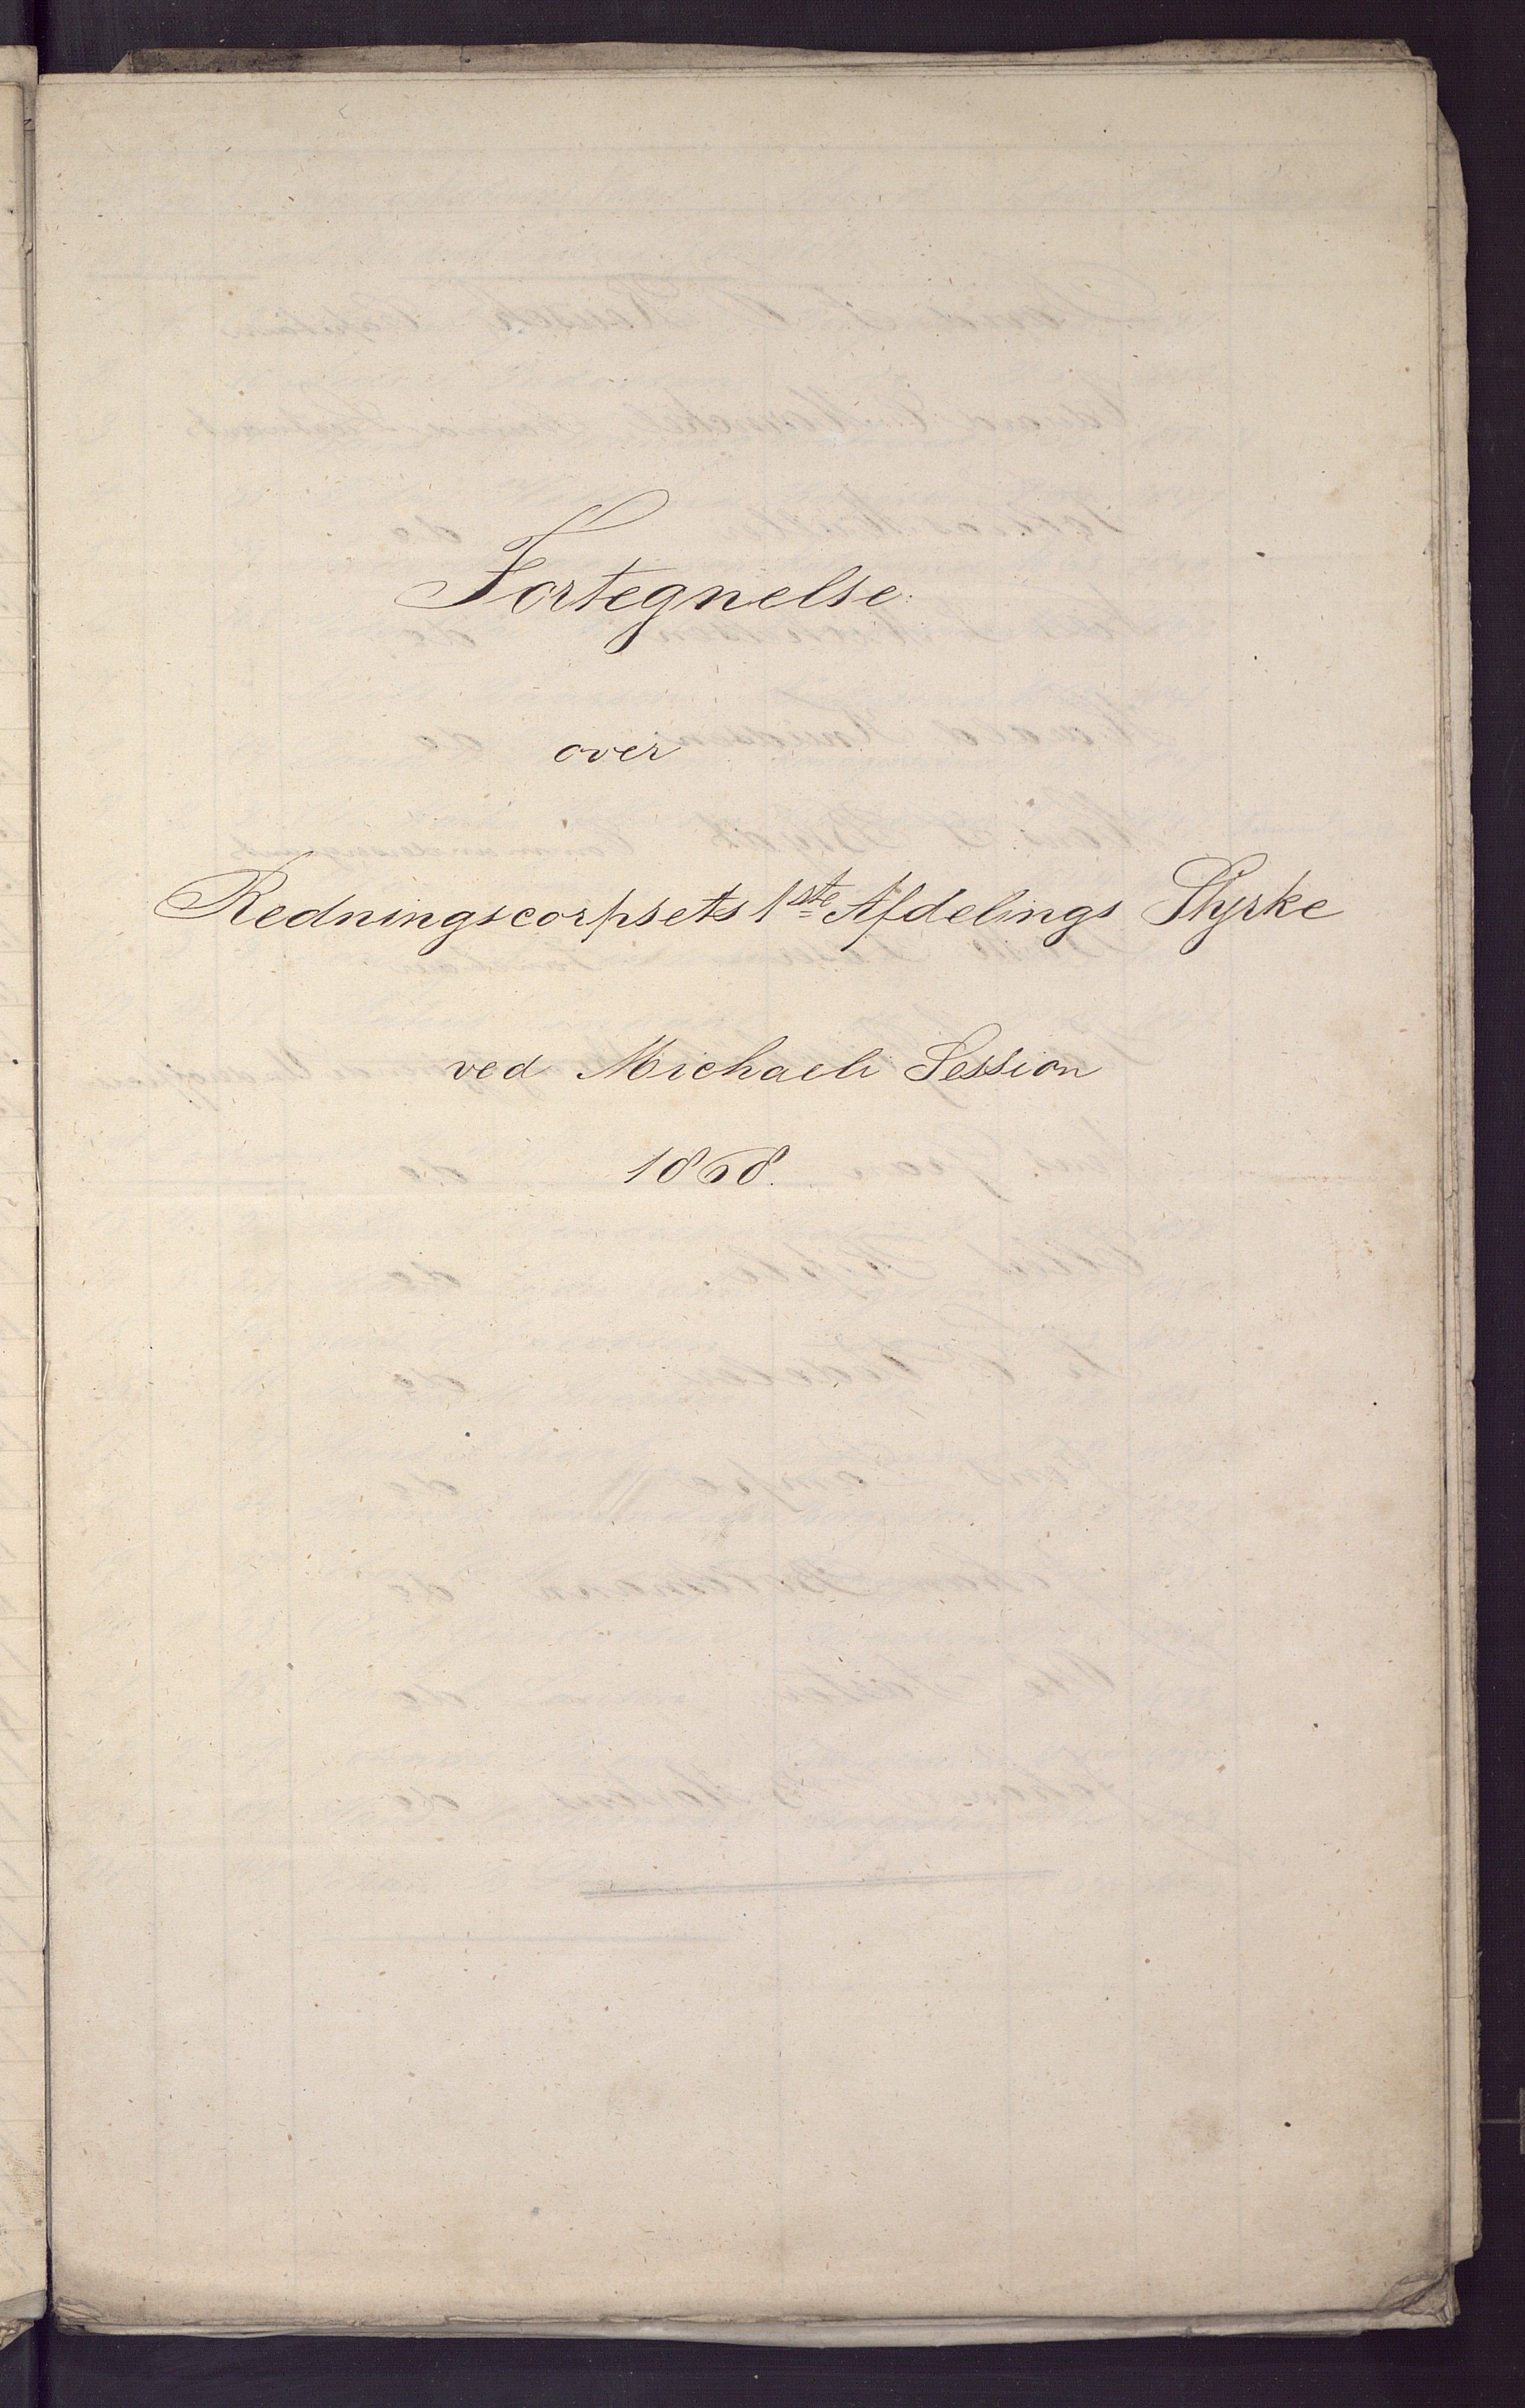 Fortegnelse
over
Redningscorpsets 1ste Afdelings Styrke
ved Michaeli Session
1868.